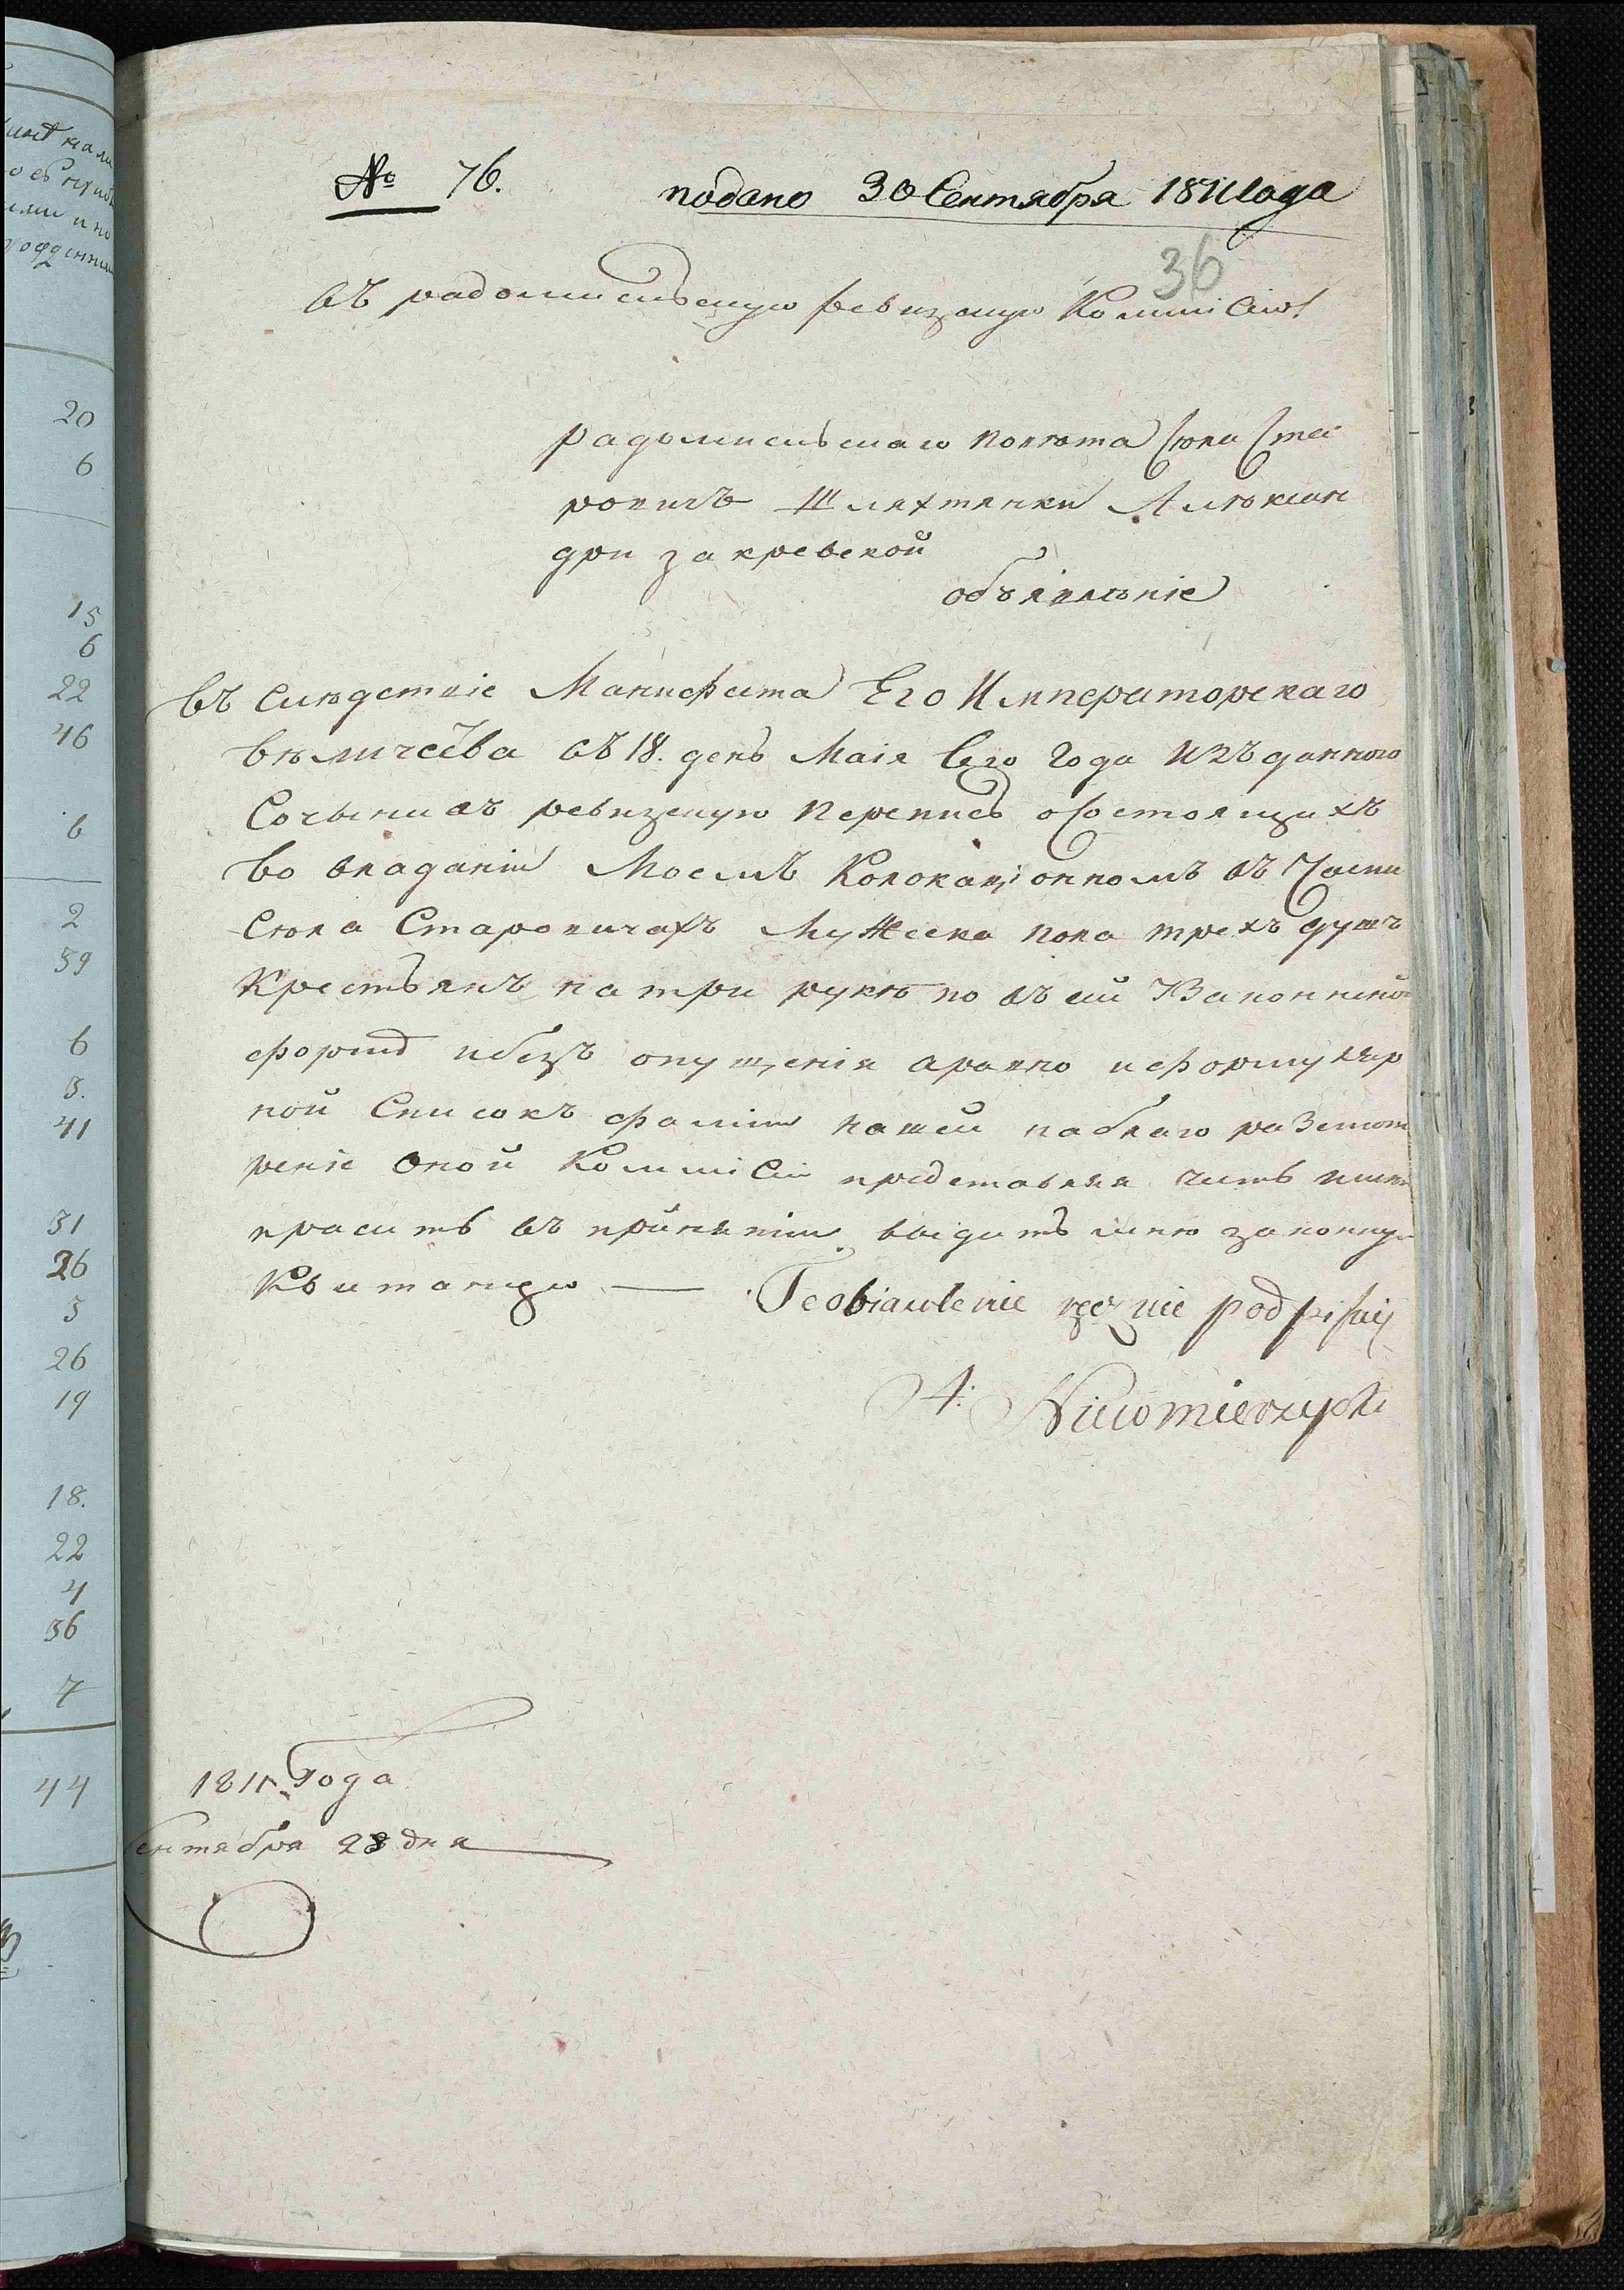 № 76. подано 30 Сентября 1811 года
36
Въ радомисльскую ревизкую Коммісію!
радомисльскаго повѣта Сѣла Ста
ровичъ Шляхтянки Алѣксан
дри закревской
объявлѣніе
Въ Слѣдствіе Манифѣста Его Императорскаго
вѣличества въ 18. день Маія Сего Года Изъданного
Сочынивъ ревизкую Перепись оСостоящихъ
во владаніи Моемъ Колокаціонномъ въ Части
Сѣла Старовичахъ Мужска пола трехъ душъ
Крестьянъ, на три рукѣ по въсей Законной
формѣ ибезъ опущенія аравно иформуляр
ной Списокъ фаміли нашей наблаго разсмот
реніе Оной Коммісіи представляя чить имѣю
прасить въ принятіи выдать мнѣ законную
Квитанцію — Te obiawlenie ręcznie podpisuię
A: Niwomierzycki
1811 Года
Сентября 28 дня
20
6
15
6
22
46
6
2
59
6
8.
41
31
26
3
26
19
18.
22
4
36
7
44